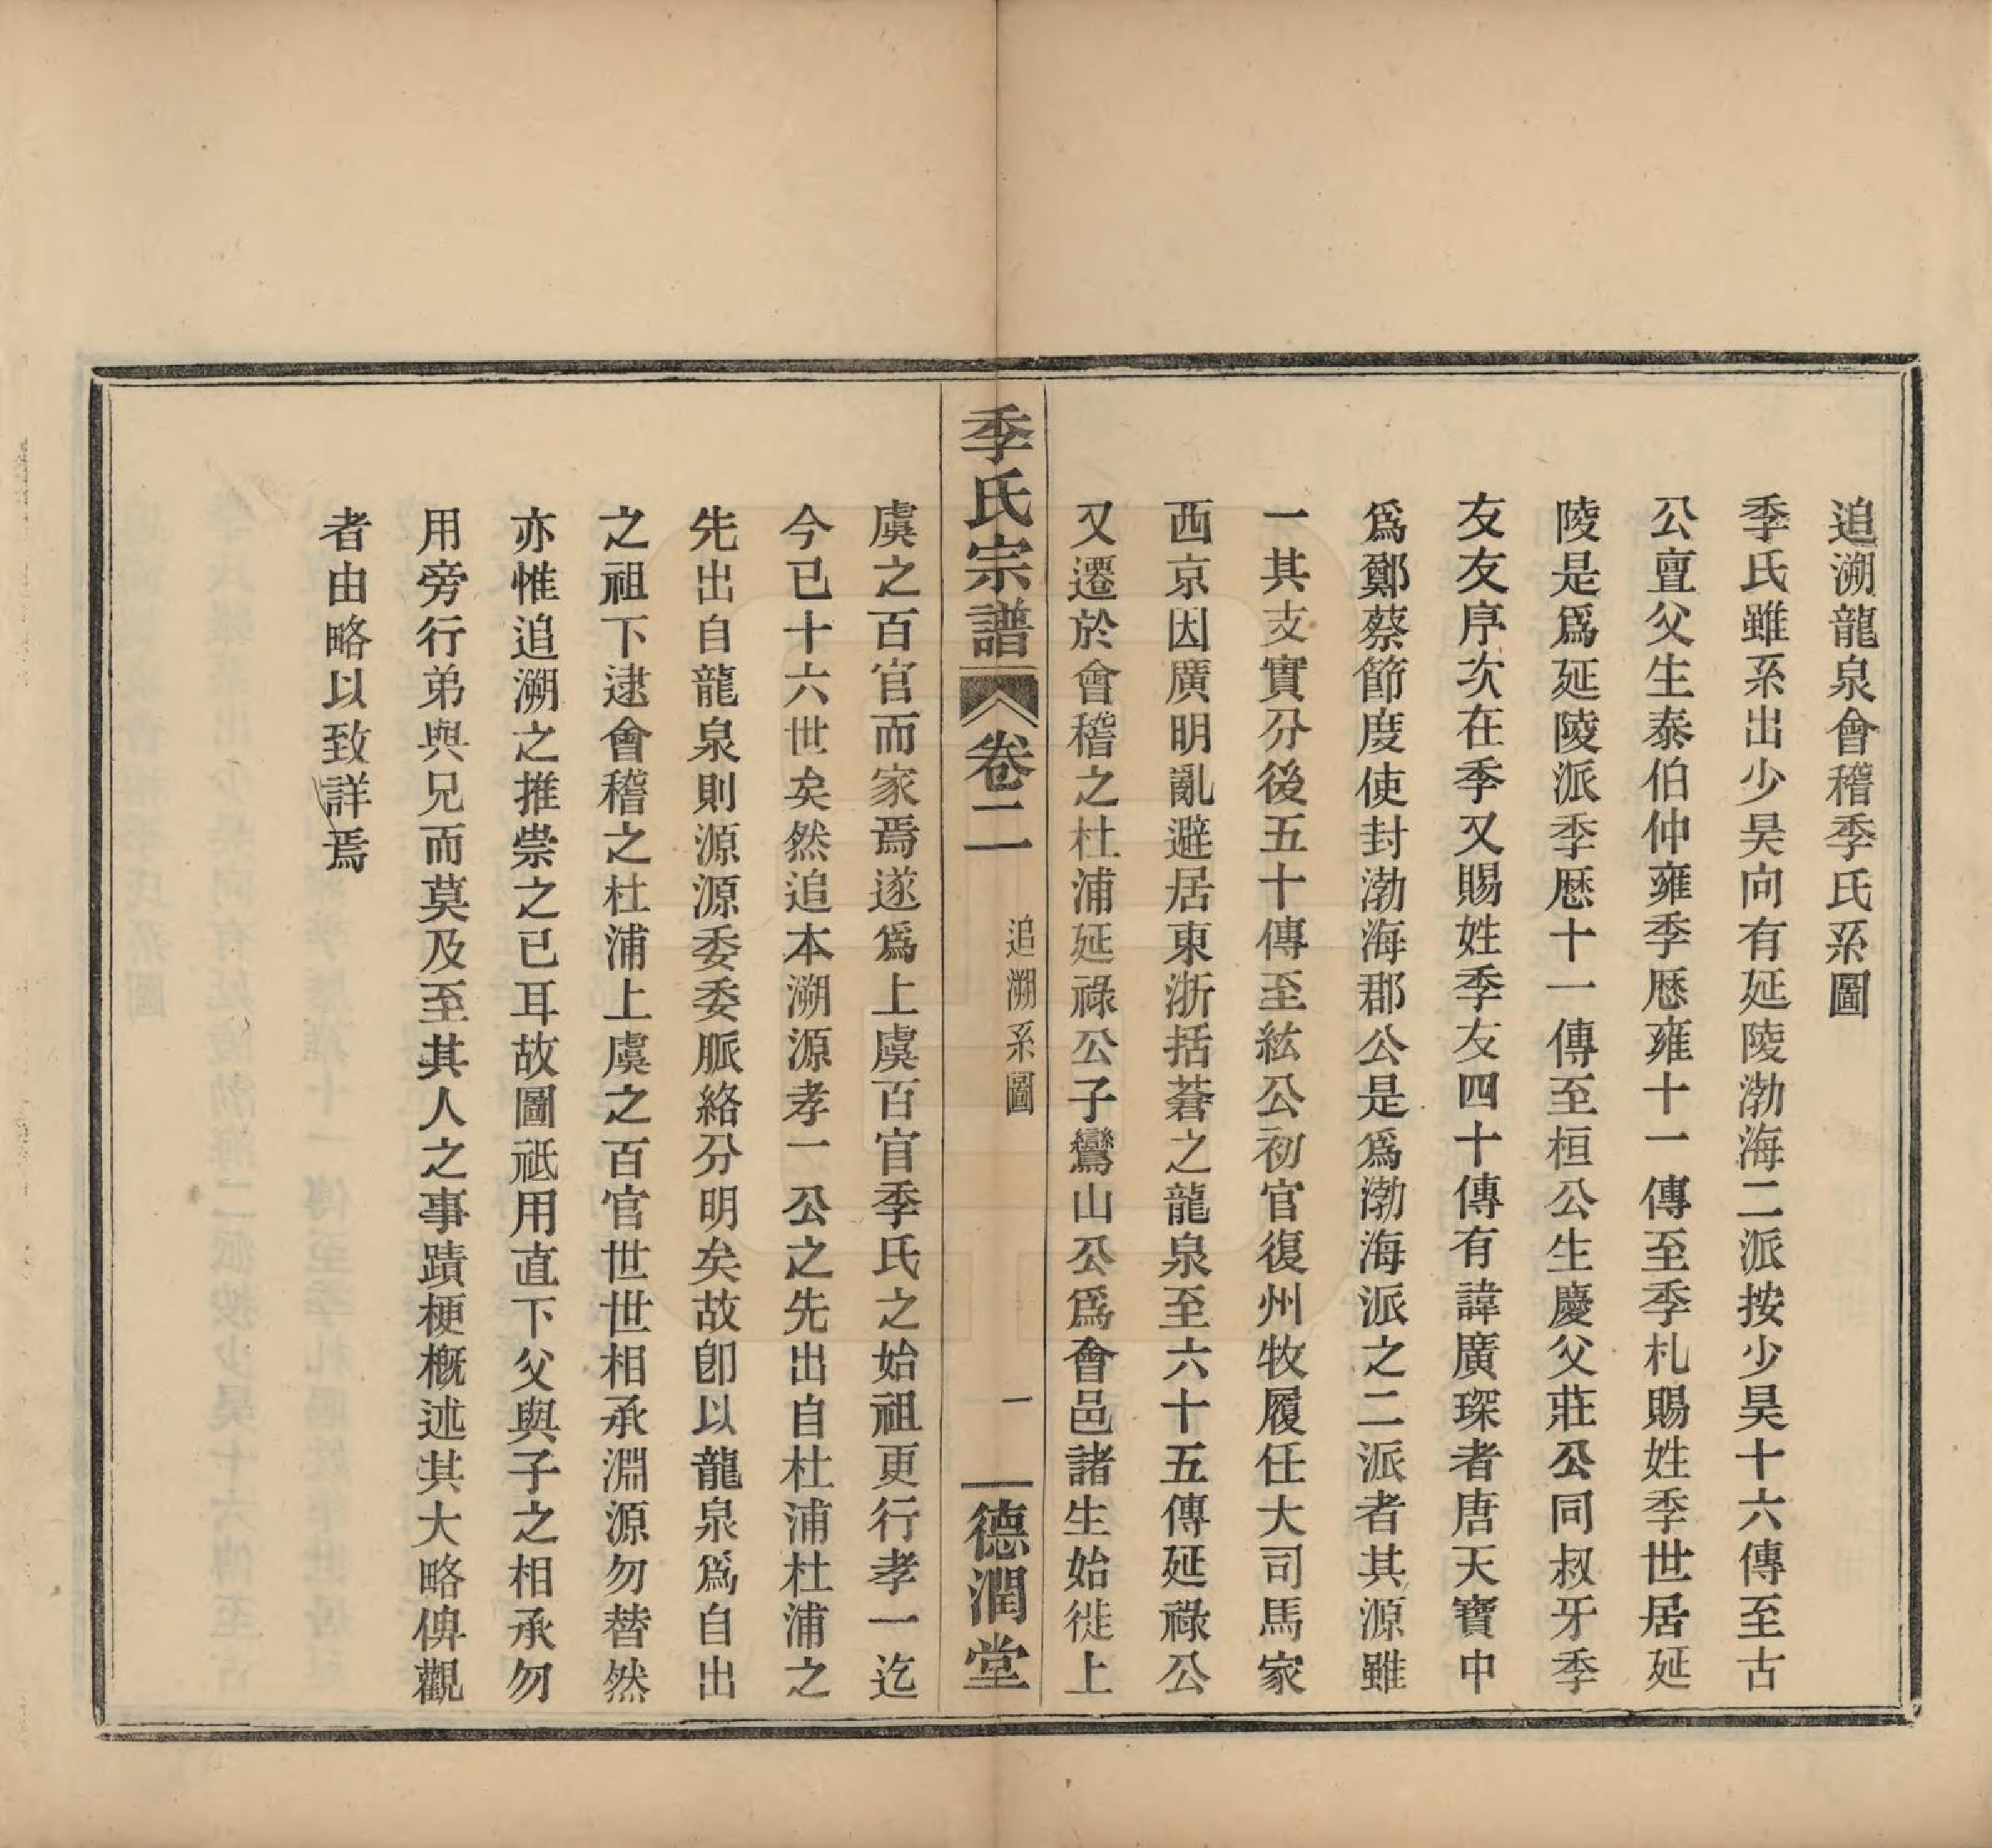 追溯龍泉會稽季氏系圖
季氏雖系出少昊向有延陵渤海二派按少昊十六傳至古
公亶父生泰伯仲雍季歷雍十一傳至季札賜姓季世居延
陵是爲延陵派季歷十一傳至桓公生慶父莊公同叔牙季
友友序次在季又賜姓季友四十傳有諱廣琛者唐天寶中
爲鄭蔡節度使封渤海郡公是爲渤海派之二派者其源雖
一其支實分後五十傳至紘公初官復州牧履任大司馬家
西京因廣明亂避居東浙括蒼之龍泉至六十五傳延祿公
又遷於會稽之杜浦延祿公子鸞山公爲會邑諸生始徙上
季氏宗譜 卷二 追溯系圖 一 德潤堂
虞之百官而家焉遂爲上虞百官季氏之始祖更行孝一迄
今已十六世矣然追本溯源孝一公之先出自杜浦杜浦之
先出自龍泉則源源委委脈絡分明矣故卽以龍泉爲自出
之祖下逮會稽之杜浦上虞之百官世世相承淵源勿替然
亦惟追溯之推崇之已耳故圖祗用直下父與子之相承勿
用旁行弟與兄而莫及至其人之事蹟梗概述其大略俾觀
者由略以致詳焉